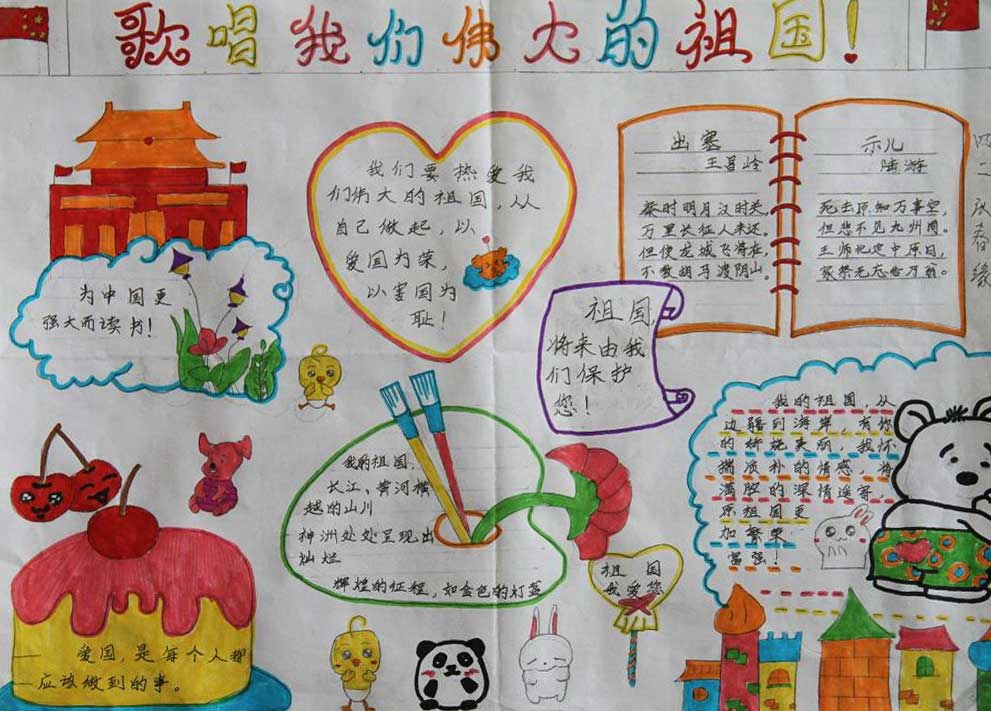 歌唱我们伟大的祖国!
为中国更
强大而读书!
我们要热爱我
们伟大的祖国,从
自己做起,以
爱国为荣,
以害国为
耻!
出塞
王昌岭
秦时明月汉时关,
万里长征人未还。
但使龙城飞将在,
不教胡马渡阴山。
示儿
陆游
死去原知万事空,
但悲不见九州同。
王师北定中原日,
家祭无忘告乃翁。
四
二
张
春
缘
祖国,
将来由我
们保护
您!
我的祖国,
长江、黄河横
越的山川
神洲处处呈现出
灿烂
辉煌的征程,如金色的灯盏
我的祖国,从
边疆到海岸,有你
的娇娆美丽,我怀
揣质朴的情感,将
满腔的深情遥寄,
原祖国更
加繁荣
富强!
祖国
我爱您
爱国,是每个人都
应该做到的事。